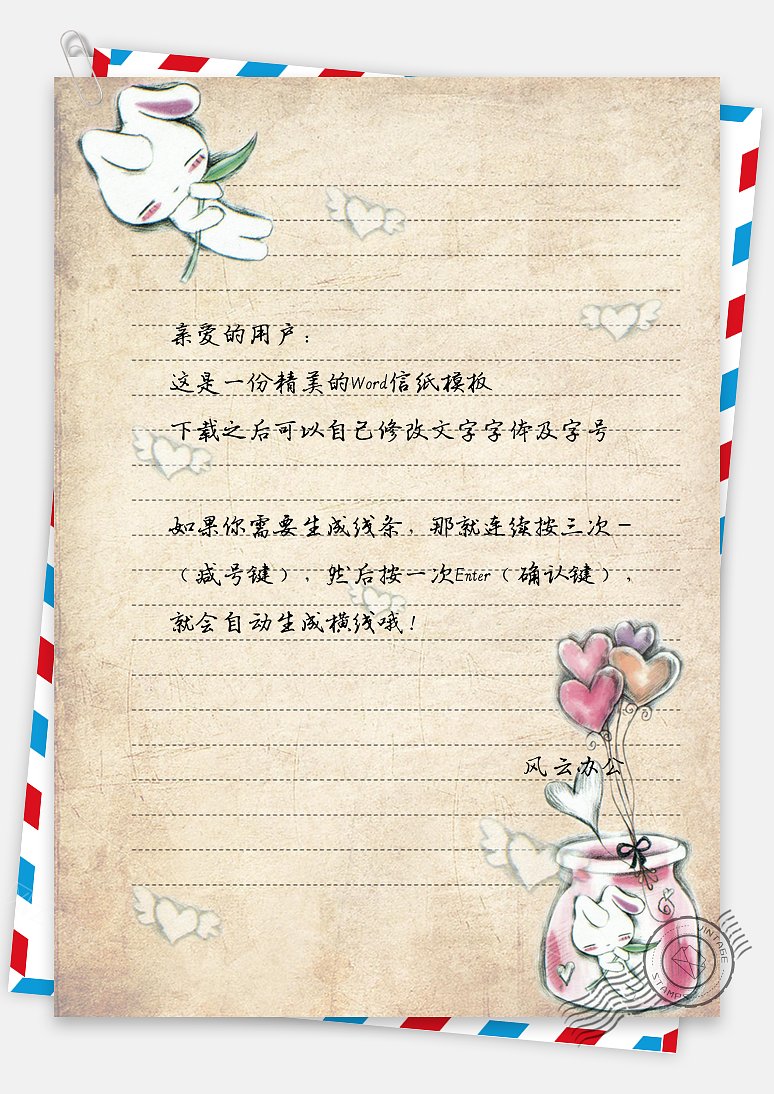 亲爱的用户：
这是一份精美的Word信纸模板
下载之后可以自己修改文字字体及字号
如果你需要生成线条，那就连续按三次－
（减号键），然后按一次Enter（确认键），
就会自动生成横线哦！
风云办公
VINTAGE
STAMPS